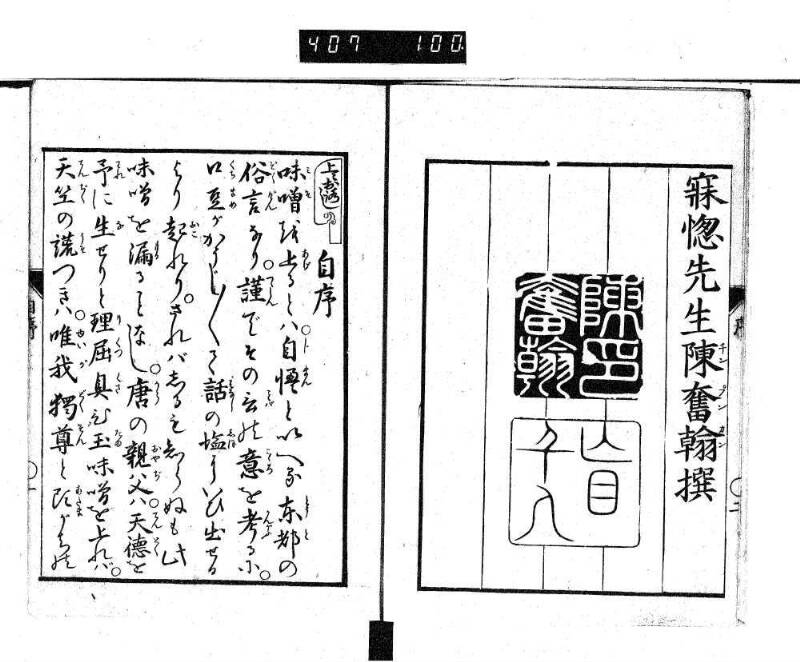 407 100.
寐惚先生陳奮翰撰
チンプンカン
陳奮
翰印
自序
味噌を上るとハ。自慢と以へる東都の
俗言なり。謹でその言の意を考るに。
口豆がかうじ〱て。話の塩よりいひ出せる
より起れり。されバしるもしらぬも此
味噌を漏ることなし。唐の親父ハ。天徳を
予に生せりと。理屈臭ひ玉味噌を上れバ。
天竺の謊つきハ。唯我獨尊と
自序